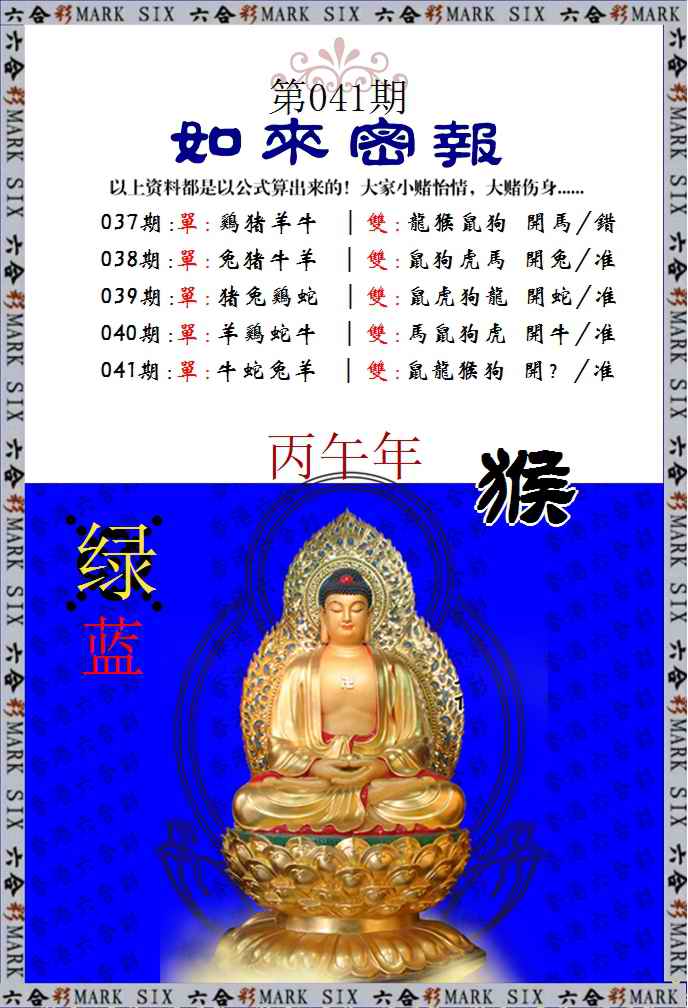 六合彩MARK SIX 六合彩MARK SIX 六合彩MARK SIX 六合彩MARK SIX
第041期
如來密報
以上资料都是以公式算出来的！大家小赌怡情，大赌伤身......
037期:單:鷄猪羊牛 | 雙:龍猴鼠狗 開馬/錯
038期:單:兔猪牛羊 | 雙:鼠狗虎馬 開兔/准
039期:單:猪兔鷄蛇 | 雙:鼠虎狗龍 開蛇/准
040期:單:羊鷄蛇牛 | 雙:馬鼠狗虎 開牛/准
041期:單:牛蛇兔羊 | 雙:鼠龍猴狗 開? /准
丙午年
猴
绿
蓝
六合彩MARK SIX 六合彩MARK SIX 六合彩MARK SIX 六合彩MARK SIX